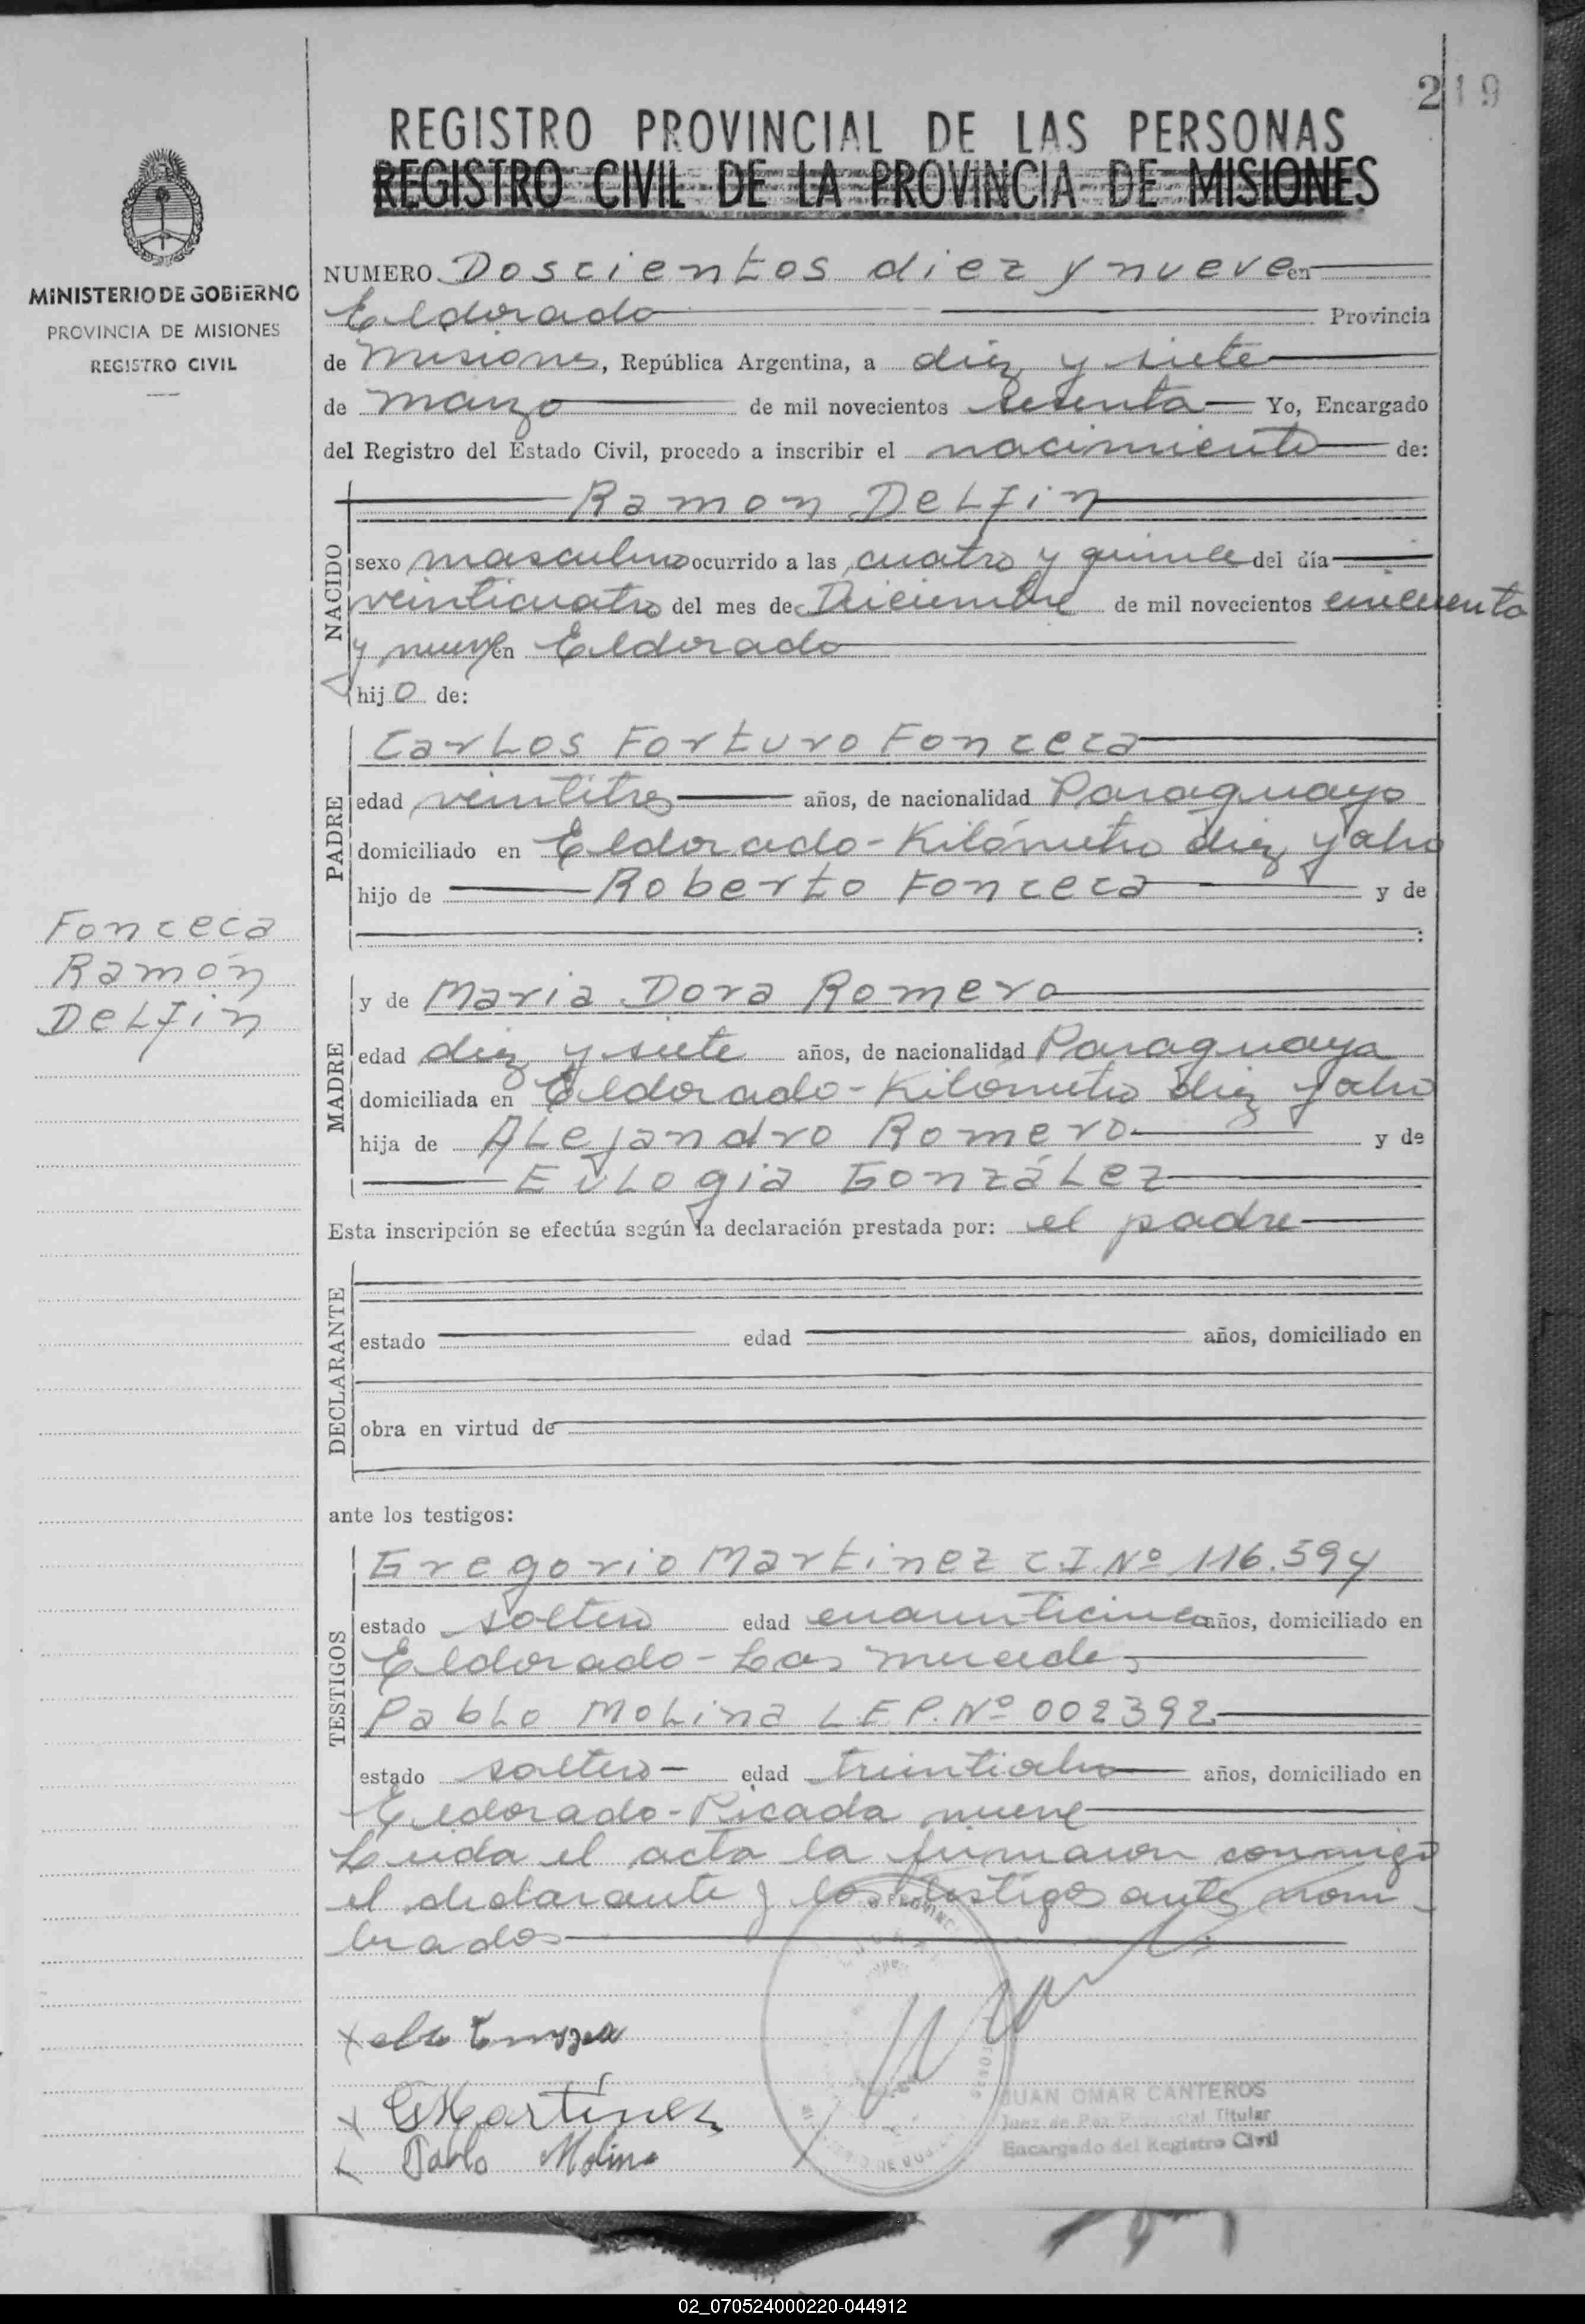 219
REGISTRO PROVINCIAL DE LAS PERSONAS
REGISTRO CIVIL DE LA PROVINCIA DE MISIONES
MINISTERIO DE GOBIERNO
PROVINCIA DE MISIONES
REGISTRO CIVIL
NUMERO Doscientos diez y nueve en
Eldorado Provincia
de Misiones, República Argentina, a diez y siete
de marzo de mil novecientos sesenta Yo, Encargado
del Registro del Estado Civil, procedo a inscribir el nacimiento de:
NACIDO
Ramon Delfin
sexo masculino ocurrido a las cuatro y quince del día
veinticuatro del mes de Diciembre de mil novecientos cincuenta
y nueve en Eldorado
hijo de:
PADRE
Carlos Forturo Fonceca
edad veintitres años, de nacionalidad Paraguayo
domiciliado en Eldorado-Kilómetro diez y ocho
hijo de Roberto Fonceca y de
:
Fonceca
Ramón
Delfin
MADRE
y de Maria Dora Romero
edad diez y siete años, de nacionalidad Paraguaya
domiciliada en Eldorado-Kilómetro diez y ocho
hija de Alejandro Romero y de
Eulogia González
Esta inscripción se efectúa según la declaración prestada por: el padre
DECLARANTE
estado edad años, domiciliado en
obra en virtud de
ante los testigos:
TESTIGOS
Gregorio Martinez C.I. Nº 116.594
estado soltero edad cuarenticinco años, domiciliado en
Eldorado-Las mercedes
Pablo Molina L.E.P. Nº 002392
estado soltero edad treintiocho años, domiciliado en
Eldorado-Picada nueve
Leida el acta la firmaron conmigo
el declarante y los testigos antes nom
brados
x
x GMartínez
x Pablo Molina
JUAN OMAR CANTEROS
Juez de Paz Titular
Encargado del Registro Civil
02_070524000220-044912